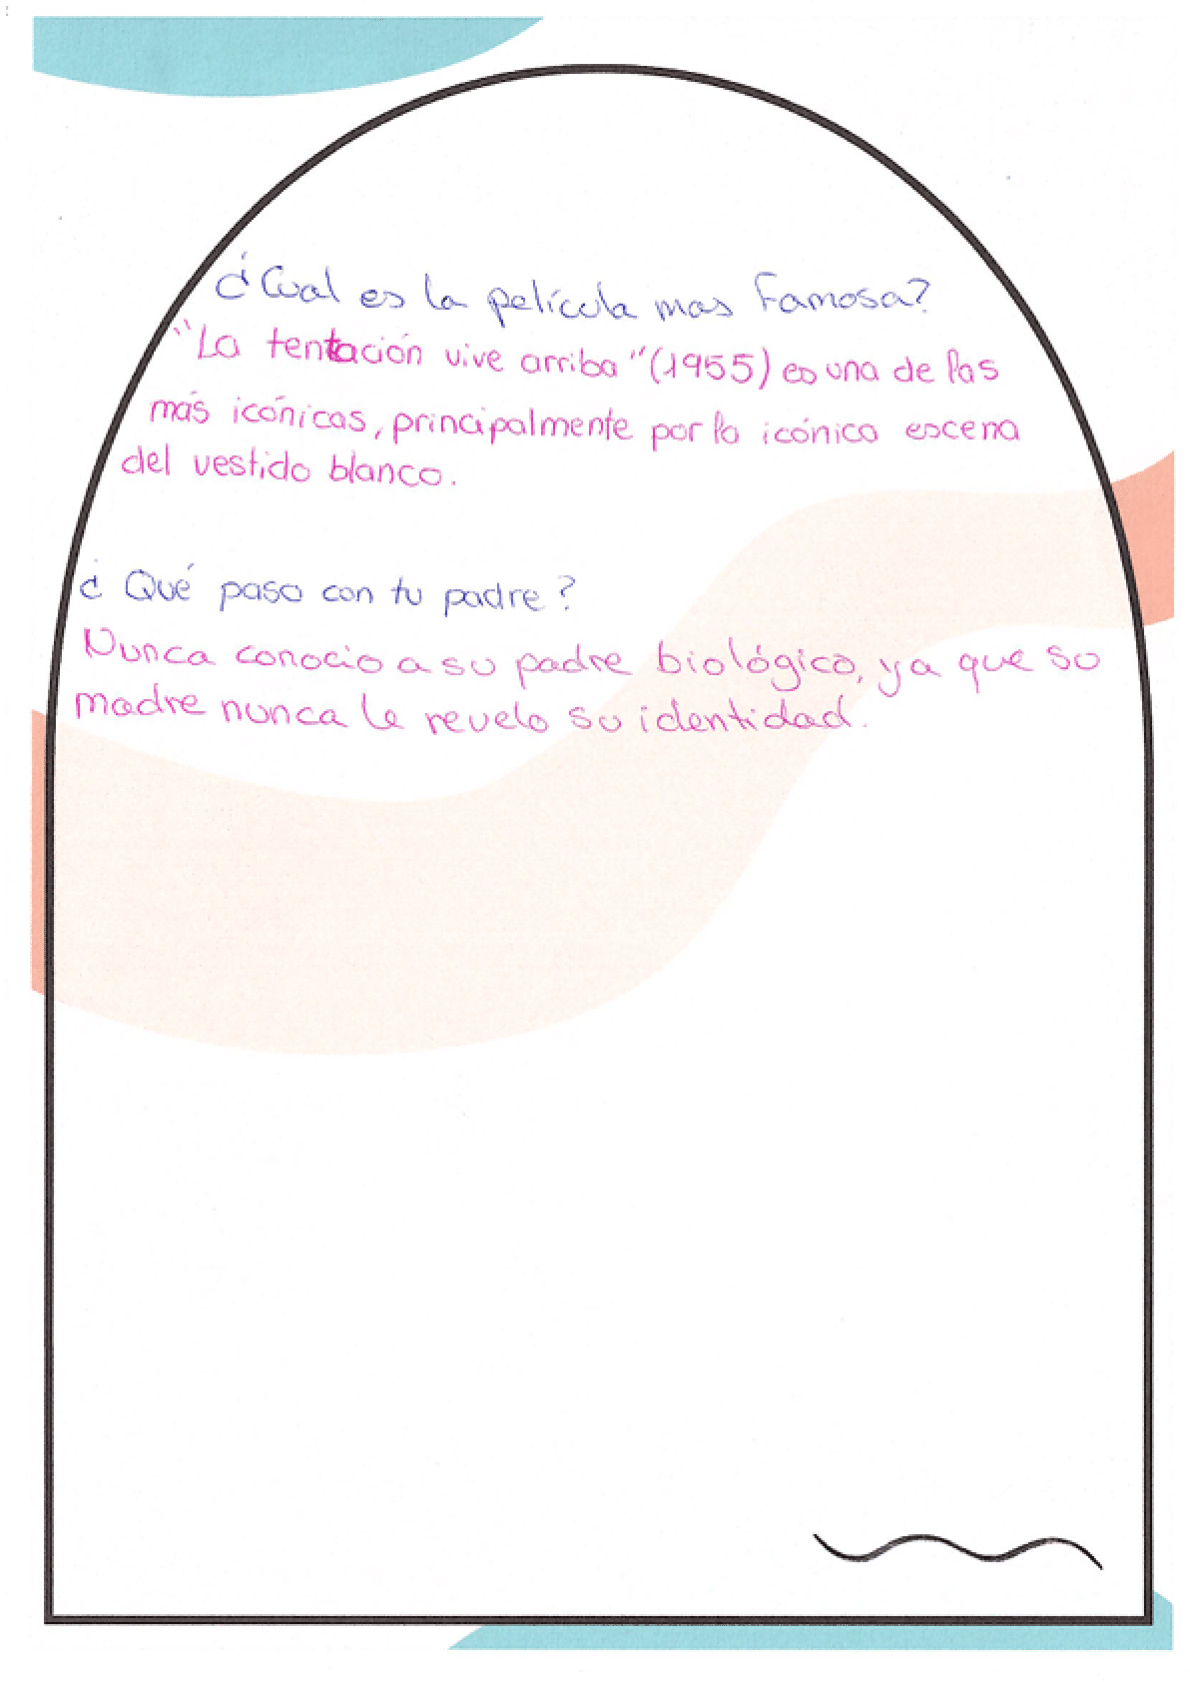 ¿Cual es la película mas Famosa?
"La tentación vive arriba" (1955) es una de las
más icónicas, principalmente por la icónica escena
del vestido blanco.
¿Qué paso con tu padre?
Nunca conocio a su padre biológico, ya que su
madre nunca le revelo su identidad.